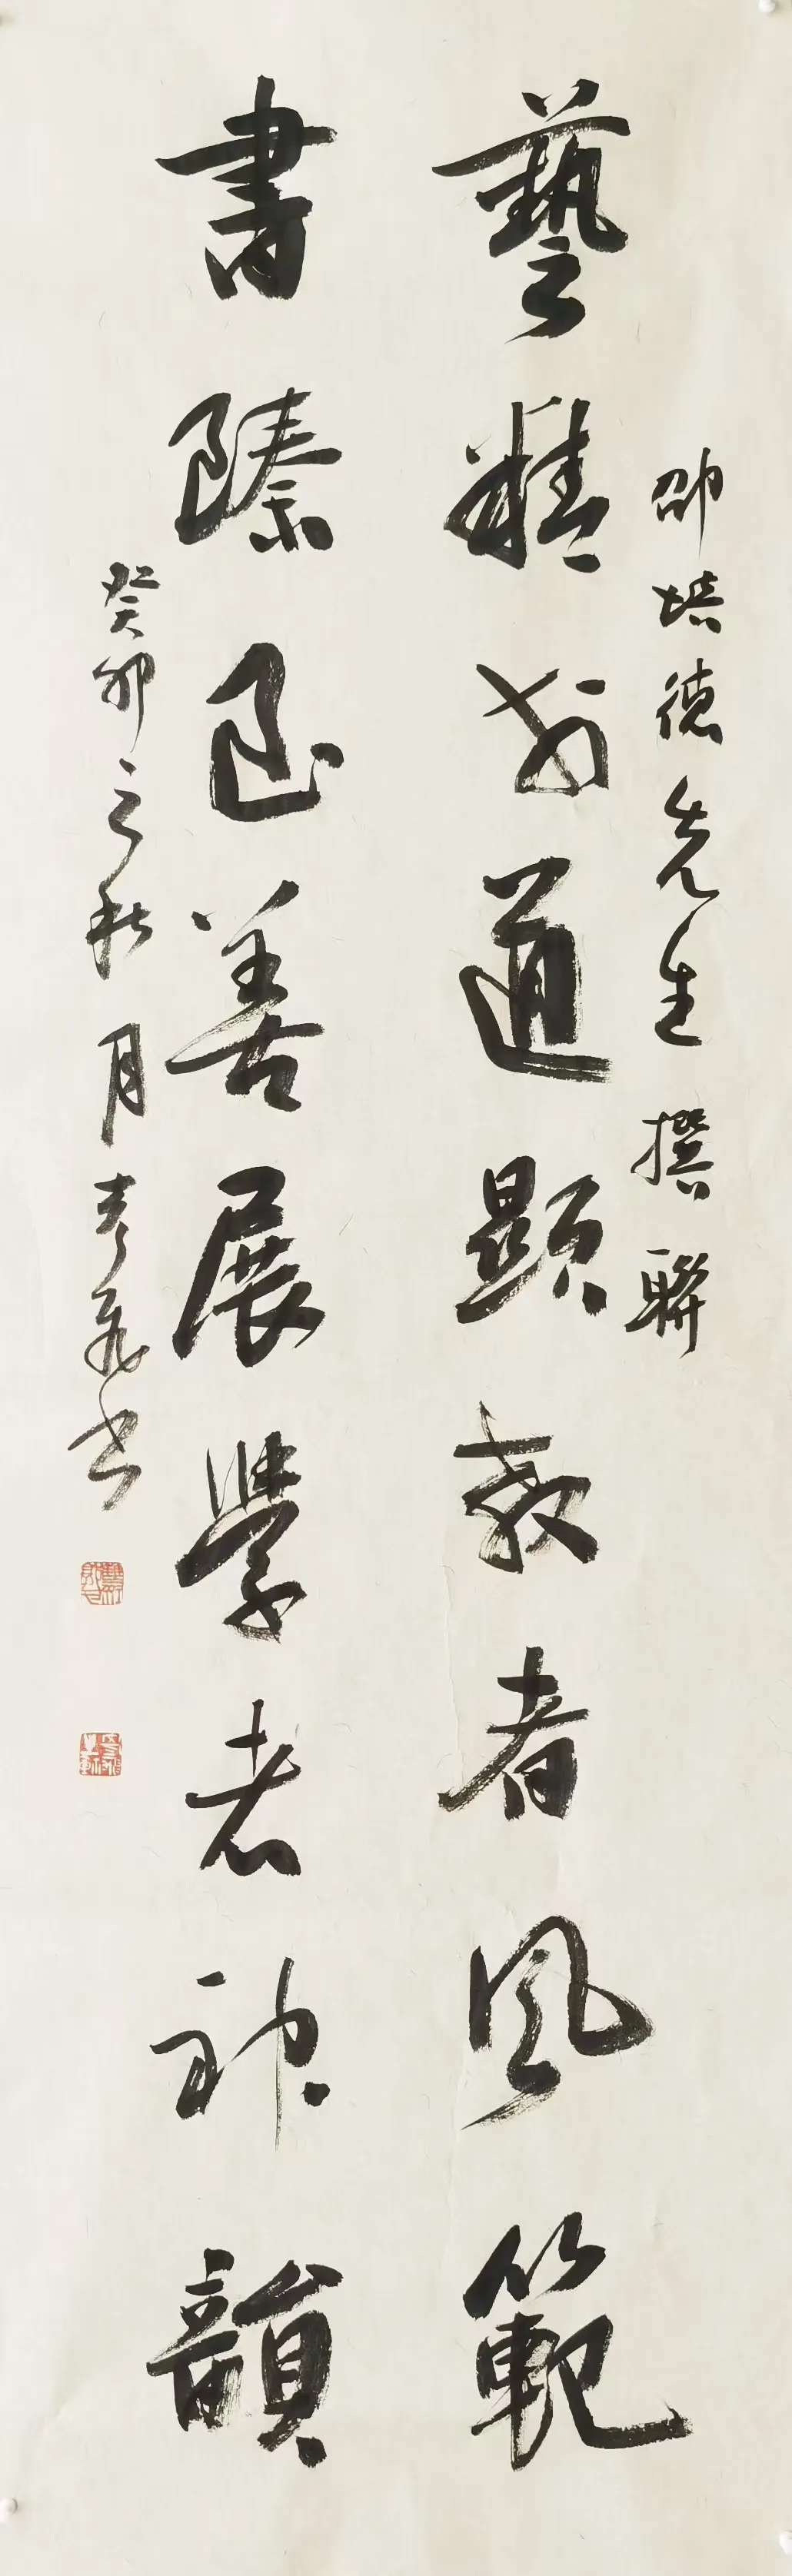 邵培德先生撰聯
藝精道顯教者風範
書臻至善展學老神韻
癸卯之秋月書